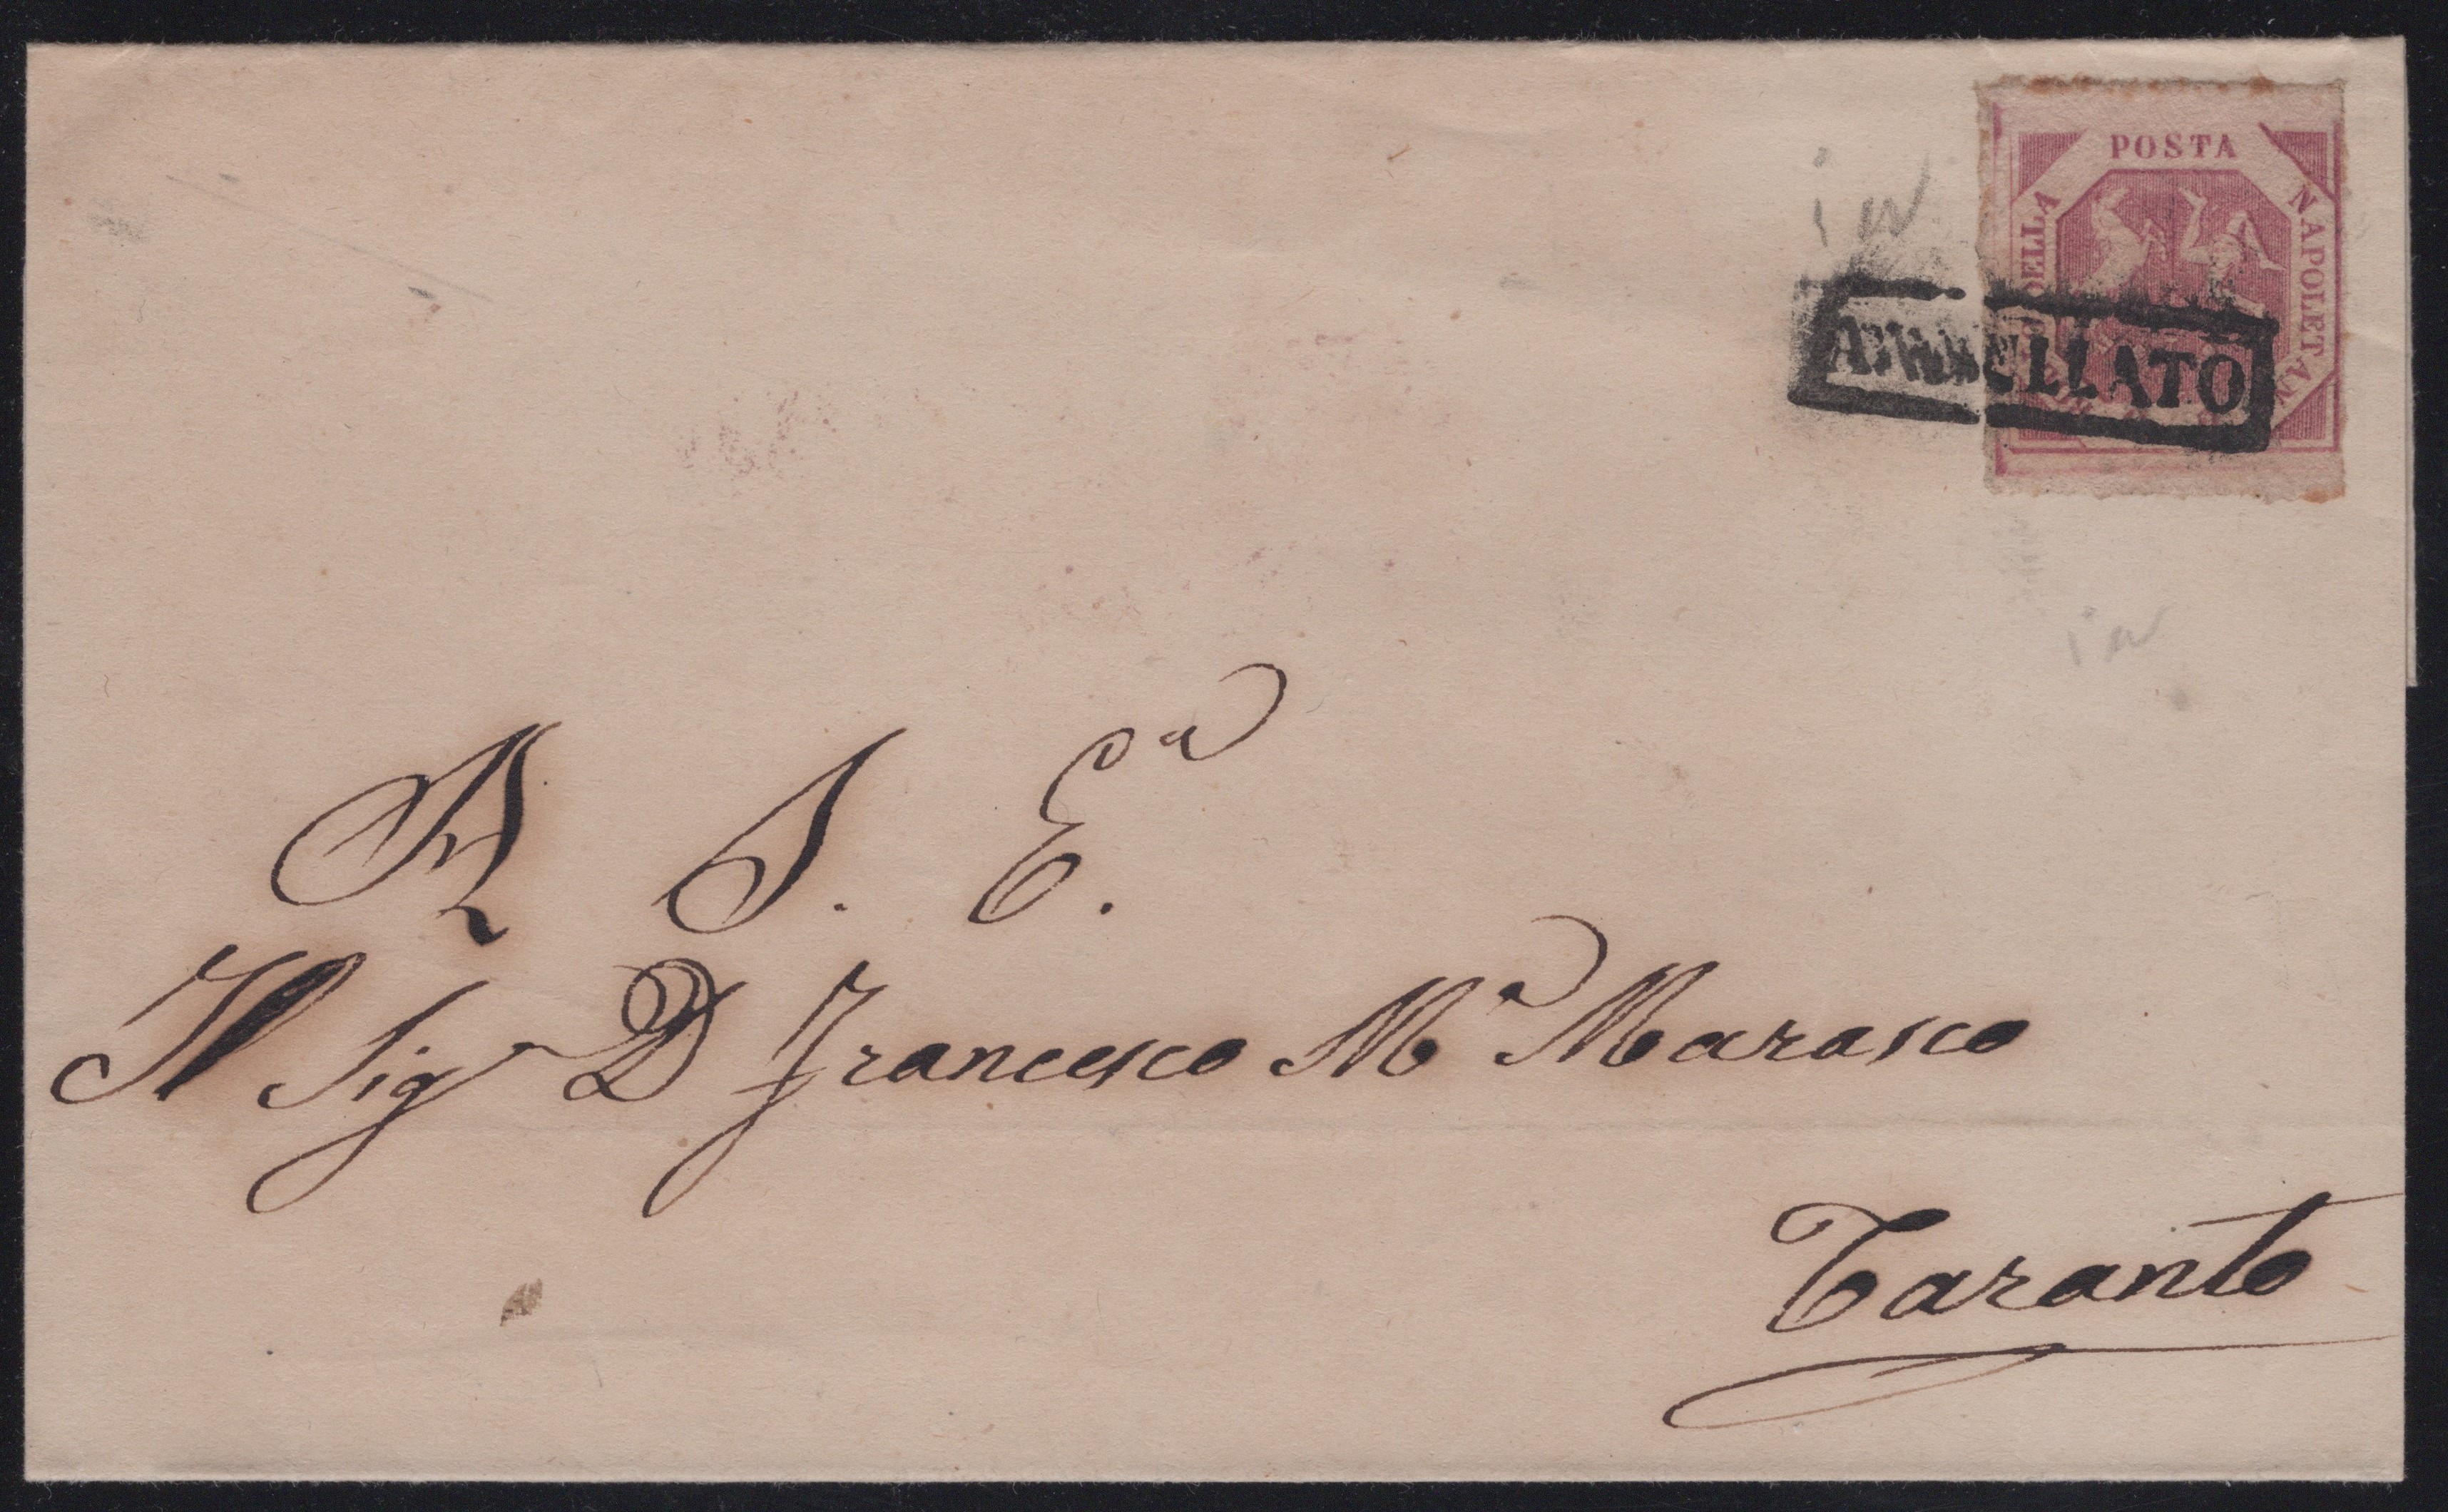 POSTA
NAPOLETANA
DELLA
ANNULLATO
A S. E.a
Il Sig D Francesco M.a Marasco
Taranto